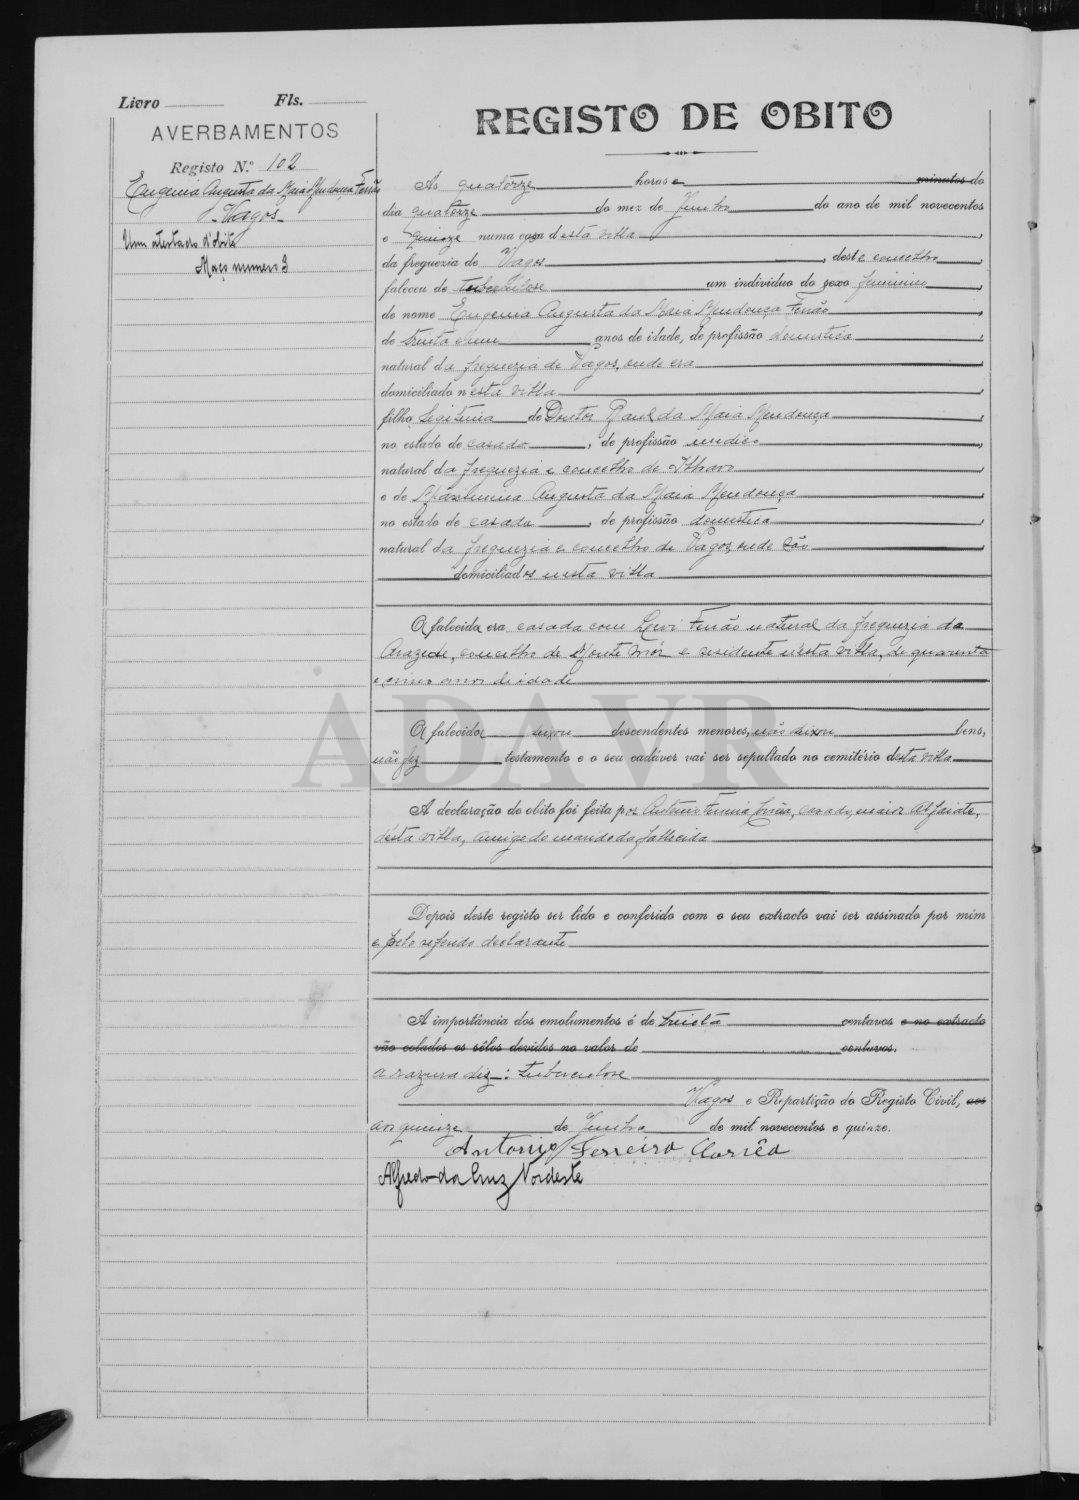 Livro Fls.
AVERBAMENTOS
Registo N.º 102
Eugenia Augusta da Maia Mendonça Ferrão
- Vagos -
Um atestado d'obito
Maço numero 3
REGISTO DE OBITO
As quatorze horas e minutos do
dia quatorze do mez de Junho do ano de mil novecentos
e quinze numa casa desta villa,
da freguezia de Vagos, deste concelho,
faleceu de tuberculose um individuo do sexo feminino,
de nome Eugenia Augusta da Maia Mendonça Ferrão,
de trinta e um anos de idade, de profissão domestica,
natural da freguezia de Vagos, onde era
domiciliado nesta villa,
filho legitima de Doutor da Maia Mendonça,
no estado de casado, de profissão medico,
natural da freguezia e concelho de Ilhavo,
e de Augusta da Maia Mendonça,
no estado de casada, de profissão domestica,
natural da freguezia e concelho de Vagos, onde são,
domiciliados nesta villa
A falecida era casada com Levi Ferrão natural da freguezia da
Arazede, concelho de Monte Mór e residente n'esta villa, de quarenta
e cinco anos de idade
A falecida deixou descendentes menores, não deixou bens,
não fez testamento e o seu cadáver vai ser sepultado no cemitério desta villa
A declaração de obito foi feita por Antonio Ferreira Corrêa, casado, maior Alfaiate,
desta villa, amigo do marido da fallecida
Depois deste registo ser lido e conferido com o seu extracto vai ser assinado por mim
e pelo referido declarante
A importância dos emolumentos é de trinta centavos e no extracto
vão colados os sêlos devidos no valor de centavos.
A razura diz: tuberculose
Vagos e Repartição do Registo Civil, aos
aos quinze de Junho de mil novecentos e quinze.
Antonio Ferreira Corrêa
Alfredo da Cruz Nordeste
ADAVR